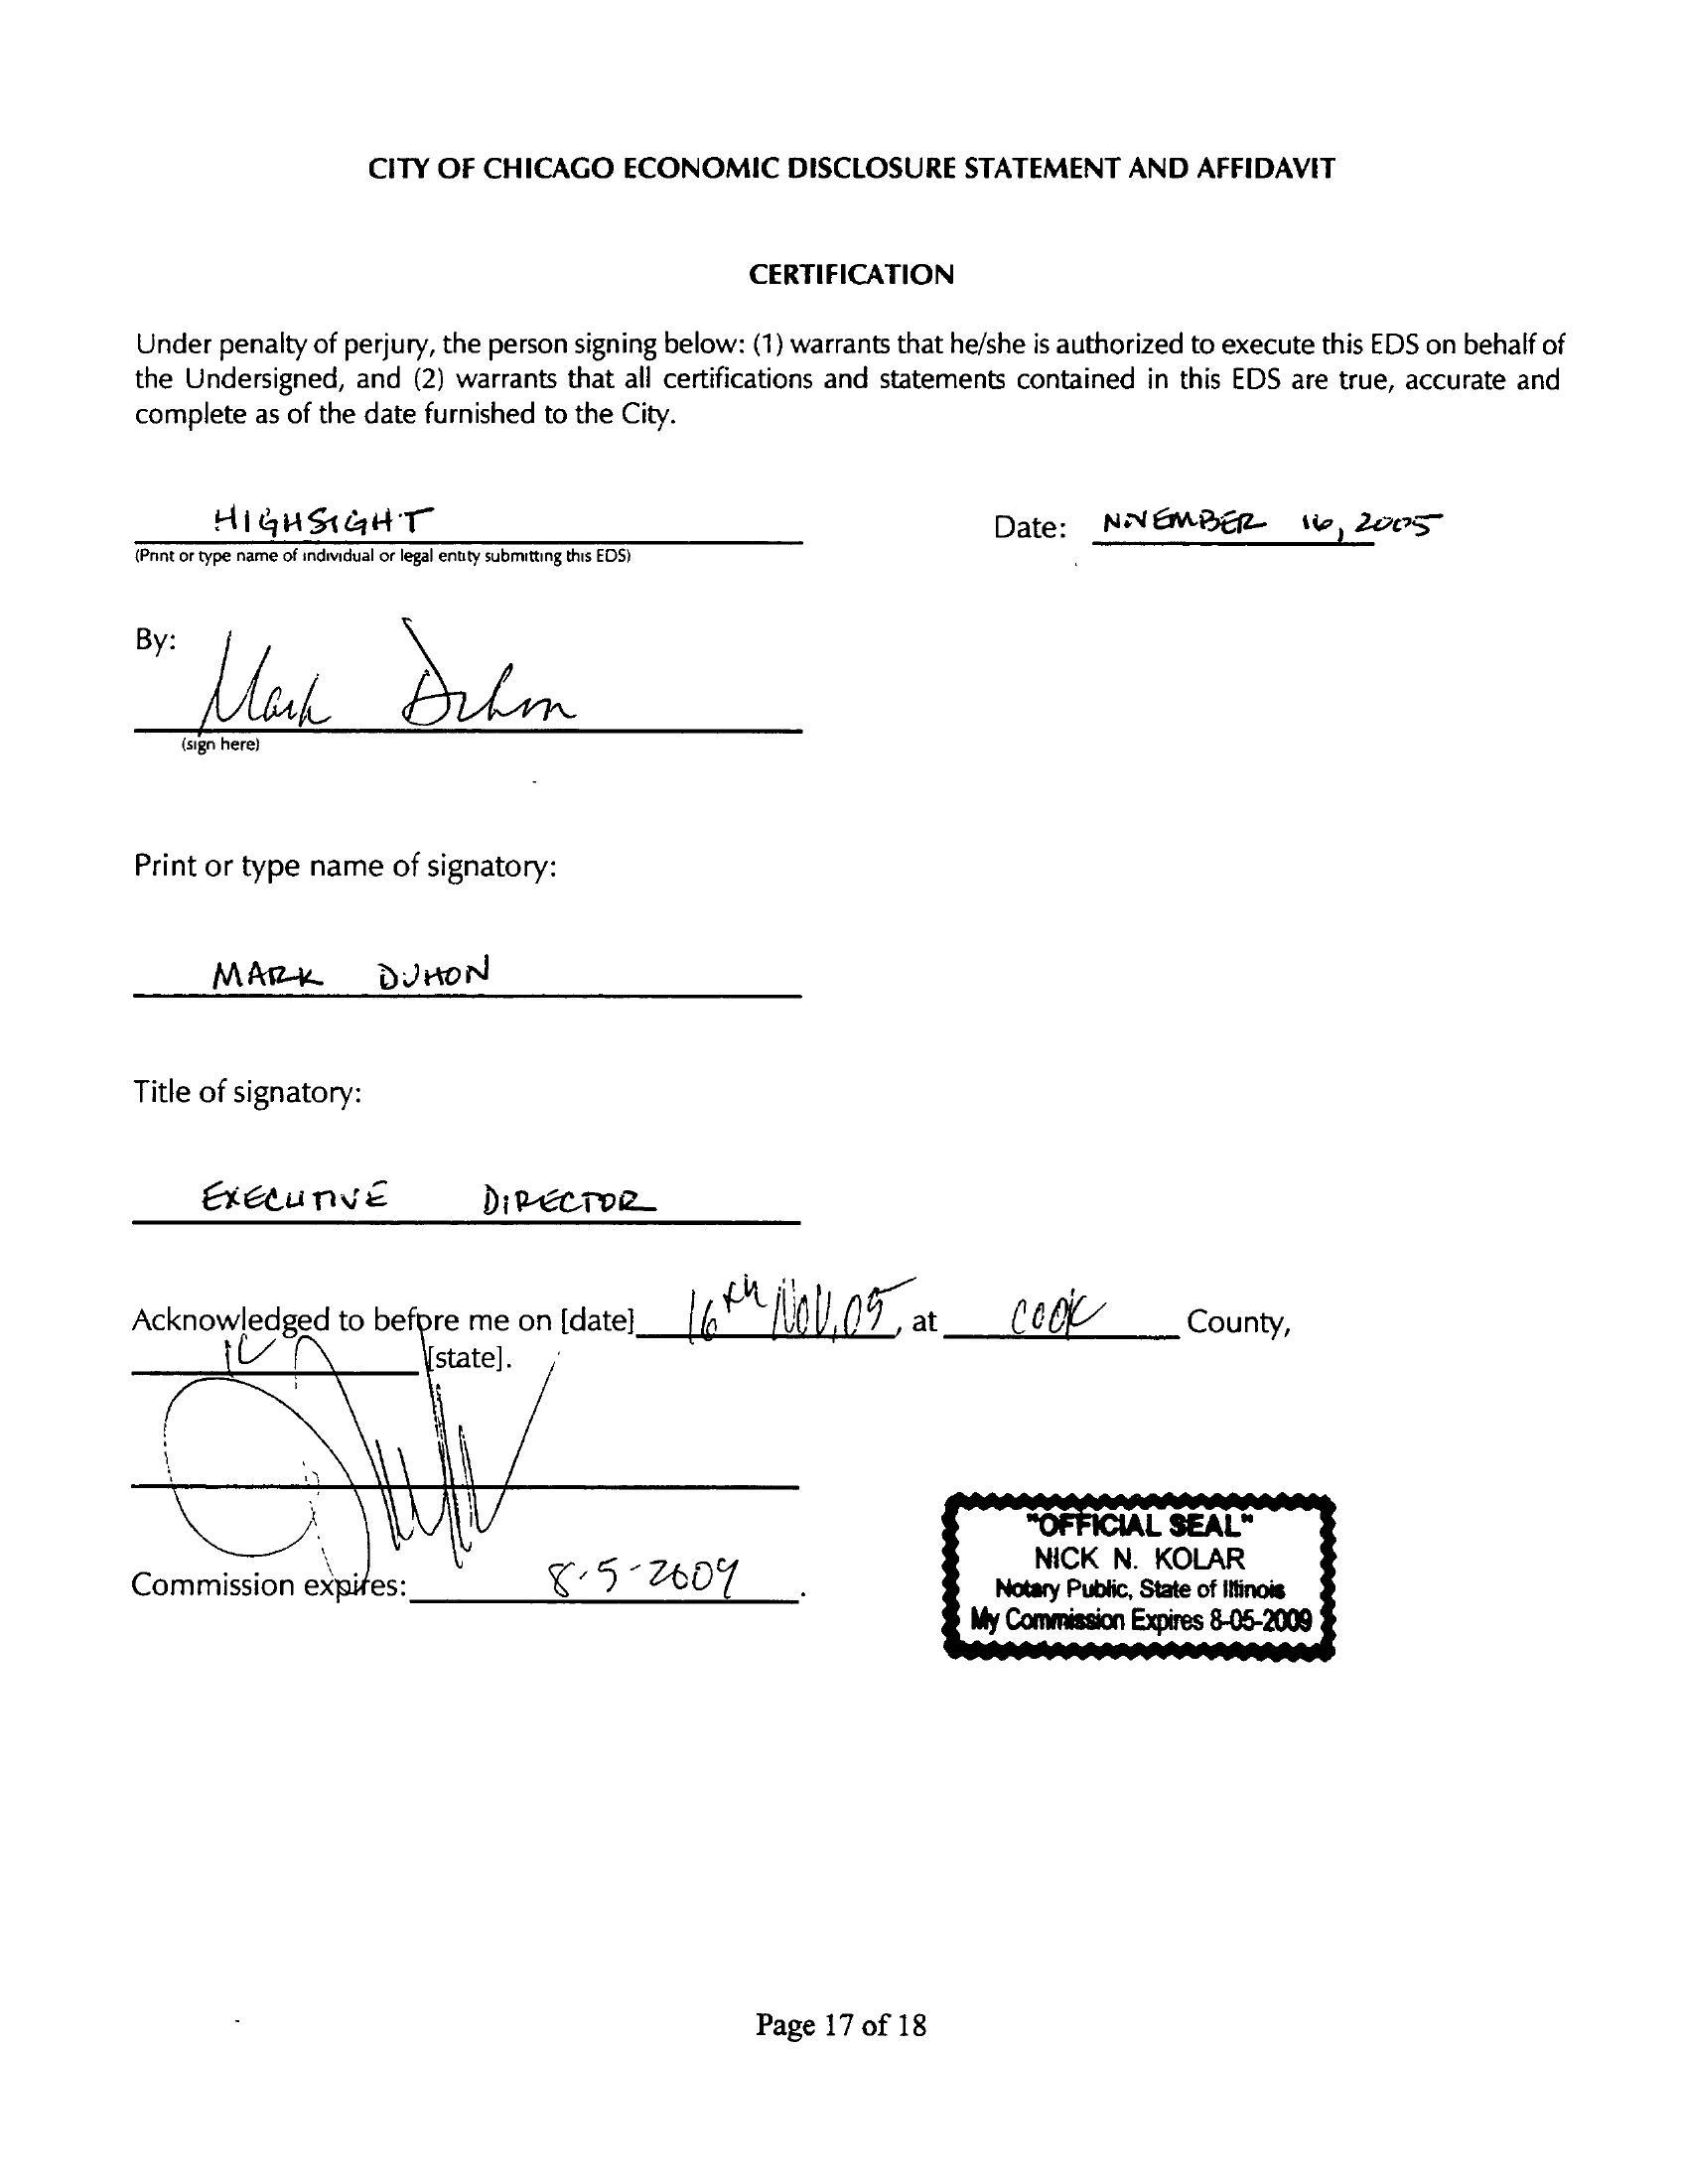 CITY OF CHICAGO ECONOMIC DISCLOSURE STATEMENT AND AFFIDAVIT
CERTIFICATION
Under penalty of perjury, the person signing below: (1) warrants that he/she is authorized to execute this EDS on behalf of
the Undersigned, and (2) warrants that all certifications and statements contained in this EDS are true, accurate and
complete as of the date furnished to the City.
HIGHSIGHT Date: NOVEMBER 16, 2005
(Print or type name of individual or legal entity submitting this EDS)
By: Mark Duhon
(sign here)
Print or type name of signatory:
MARK DUHON
Title of signatory:
EXECUTIVE DIRECTOR
Acknowledged to before me on [date] 16th Nov, 05, at COOK County,
IL [state].
Commission expires: 8-5-2009.
"OFFICIAL SEAL"
NICK N. KOLAR
Notary Public, State of Illinois
My Commission Expires 8-05-2009
Page 17 of 18